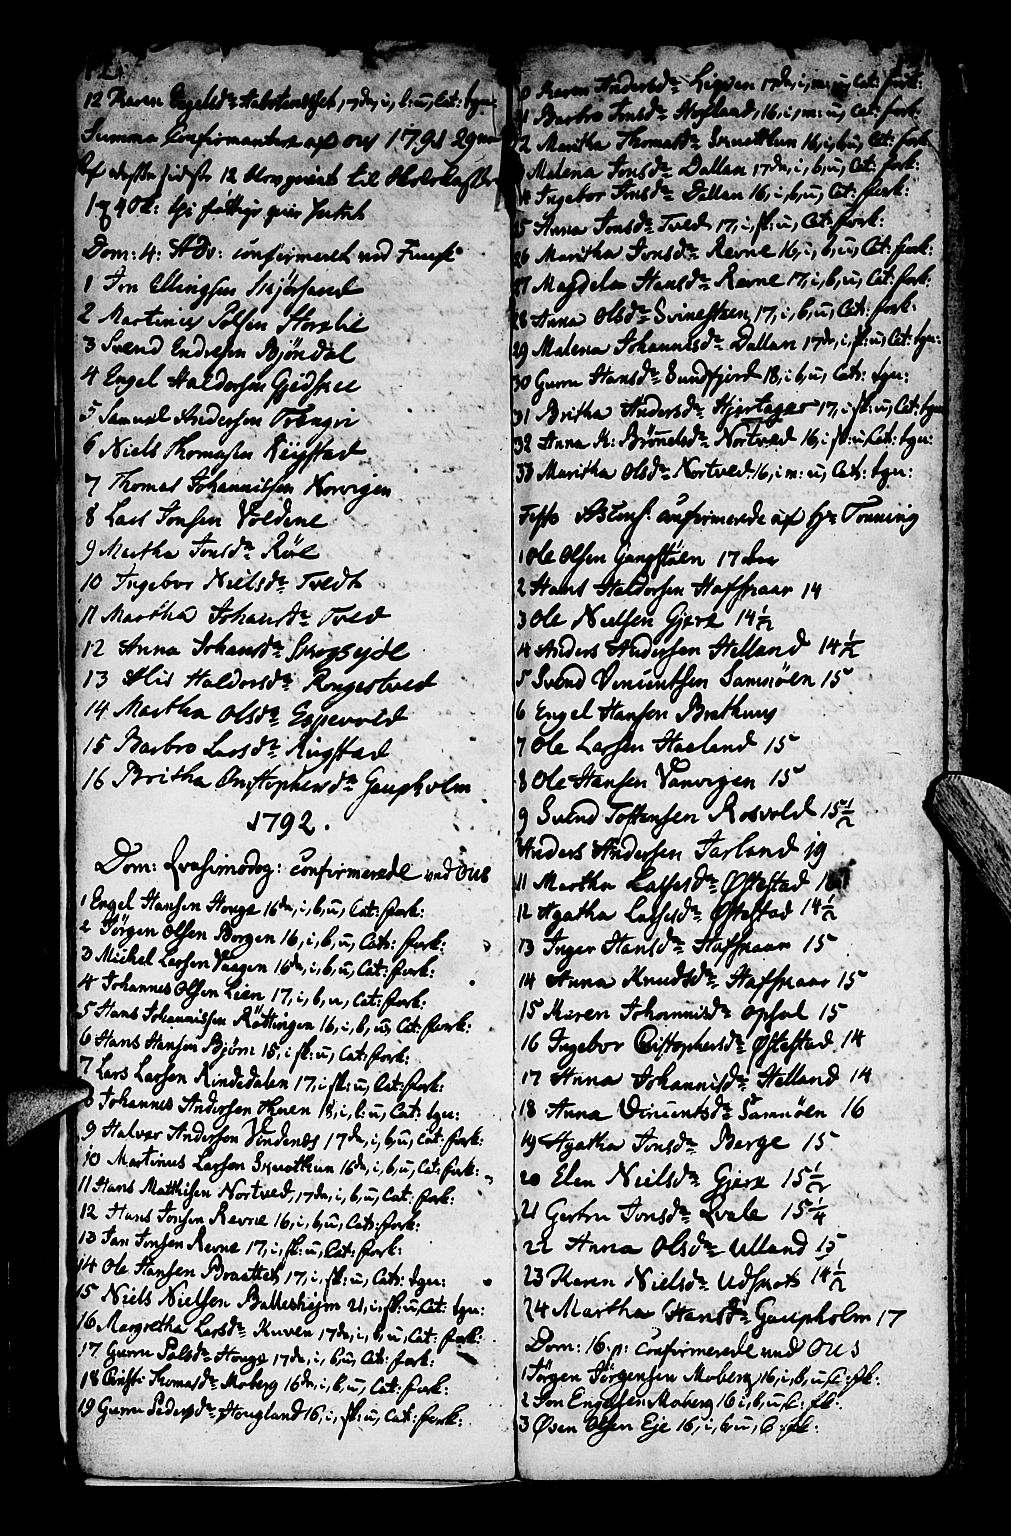 12 Karen Engelsdr Halstenshet, 17 dr, i, b: u, Cat: tgu:
Summa Confirmanter af ous 1791 29
Af disse sidste 12 blev givet til
Dom: 4: Adv: confirmeret ved Fuuse
1 Jon Ellingsen Skjörsand
2 Martinus Polsen Horslie
3 Svend Endresen Bjöndal
4 Engel Haldorsen Gjedsree
5 Samuel Andersen Trengri
6 Niels Thomasen Röigstad
7 Thomas Johannissen Norvigen
8 Lars Jonsen Voldene
9 Martha Jonsdr Röe
10 Ingebor Nielsdr Tvedt
11 Martha Johansdr Tved
12 Anna Johansdr Skogseyde
13 Alis Haldorsdr Rongestved
14 Martha Olsdr Espevold
15 Barbro Larsdr Rigstad
16 Britha Christophersdr Gaupholm
1792.
Dom: Qvasimodog: confirmerede ved Ous
1 Engel Hansen Houge 16 dr, i, b, u, Cat: fork:
2 Jörgen Olsen Borgen 16, i, b, u, Cat: fork:
3 Michel Larsen Vaagen 16 dr, i, b, u, Cat: fork:
4 Johannes Olsen Lien 17, i, b, u, Cat: fork:
5 Hans Johannissen Röttingen 16, i, b, u, Cat: fork:
6 Hans Hansen Björn 15, i sk: u, Cat: fork:
7 Lars Larsen Rindedalen 17, i sk: u, Cat: fork:
8 Johannes Andersen 18, i, b: u, Cat: tgu:
9 Halvor Andersen Vindenes 17 dr, i, b, u, Cat: fork:
10 Martinus Larsen Skuothun 16 dr, i, b, u, Cat: fork:
11 Hans Mathisen Nortved, 17 dr, i, b, u, Cat: fork:
12 Hans Jonsen Revne 16, i, b, u, Cat: fork:
13 Jan Jonsen Revne 17, i, sk: u, Cat: fork:
14 Ole Hansen Braattet 17, i, sk: u, Cat: tgu:
15 Niels Nielsen Ballesheim 21, i, sk: u, Cat: tgu:
16 Margretha Larsdr Kuven 17 dr, i, b, u, Cat: fork:
17 Guru Polsdr Houge 17 dr, i, b, u, Cat: fork:
18 Christi Thomasdr Moberg 16 dr, i, b, u, Cat: fork:
19 Guru Pedersdr Hougland 16, i, sk: u, Cat: fork:
Karen Andersdr Ligven 17 dr, i, m: u, Cat: fork:
21 Barbro Jonsdr Hogland, 16, i, m: u, Cat: fork:
22 Maritha Thomasdr Skuothun 16, i, b, u, Cat: fork:
Malena Jonsdr Dallan 17 dr, i, b, u, Cat: fork:
Ingebor Jonsdr Dallan 16, i, b, u, Cat: fork:
25 Anna Jonsdr Tved 17, i, sk: u, Cat: fork:
26 Maritha Jonsdr Revne 16, i, b, u, Cat: fork:
27 Magdela Hansdr Revne 17, i, b, u, Cat: fork:
28 Anna Olsdr Svinestuen, 17, i, b, u, Cat: fork:
29 Malena Johannisdr Dallan 17 dr, i, sk: u, Cat: tgu:
30 Guru Hansdr Sundfjord 18, i b, u, Cat: tgu:
31 Britha Andersdr Hjertager 17, i sk: u, Cat: tgu
32 Anna K: Brönnelsdr Nortved 16, i sk: u, Cat: tgu:
33 Maritha Olsdr Nortved 16, i m: u, Cat: tgu:
Festo Ascens: confirmerede af Hr Tonning
1 Ole Olsen Gangstöen 17 aar
2 Hans Haldorsen Hafskaar 14
3 Ole Nielsen Gjere 14 1/2
4 Anders Andersen Helland 14 1/2
5 Svend Vincentsen Samnöen 15
6 Engel Hansen Brethuus
7 Ole Larsen Haeland 15
8 Ole Hansen Vanvigen 15
9 Svend Tostensen Rosvold 15 1/2
Anders Andersen Jarland 19
11 Martha Lassesdr Östestad 16
12 Agatha Lassesdr Östestad 14 1/2
13 Inger Hansdr Hafskaar 15
14 Anna Knudsdr Hafskaar 15
15 Maren Johannisdr Opsal 15
16 Ingebor Christophersdr Östestad 14
17 Anna Johannisdr Helland 14
18 Anna Vincentsdr Samnöen 16
19 Agatha Jonsdr Berge 15
20 Elen Nielsdr Gjere 15 1/2
21 Gertru Jonsdr Qvale 15 1/4
22 Anna Olsdr Ulland 15
23 Karen Nielsdr Udskot 14 1/2
24 Martha Hansdr Gaupholm 17
Dom: 16. p: confirmerede ved Ous
1 Jörgen Jörgensen Moberg 16, i, b, u, C: fk:
2 Jon Engelsen Moberg 16 i, b, u, C: fk:
3 Öven Olsen Eje 16, i, b, u, C: fk: